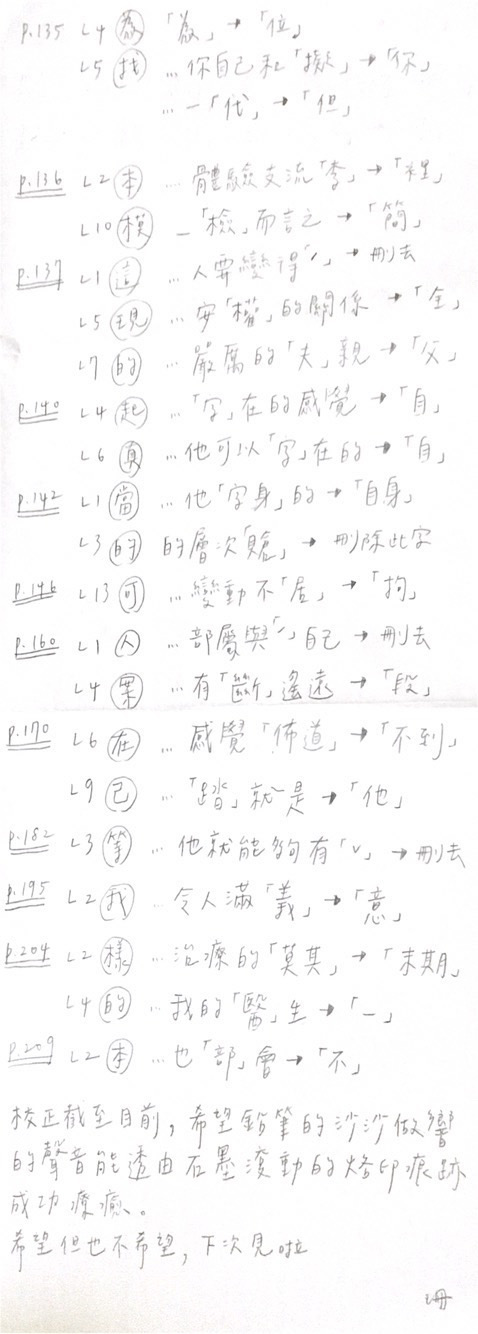 p.135 L4 為 「為」→「位」
L5 找 …你自己和「擬」→「你」
…一「代」→「但」
p.136 L2 本 …體驗支流「李」→「裡」
L10 模 …「檢」而言之 →「簡」
p.137 L1 這 …人要變得「、」→ 刪去
L5 現 …安「權」的關係 →「全」
L7 的 …嚴厲的「夫」親 →「父」
p.140 L4 起 …「字」在的感覺 →「自」
L6 真 …他可以「字」在的 →「自」
p.142 L1 當 …他「字身」的 →「自身」
L3 的 的層次「貽」→ 刪除此字
p.146 L13 可 …變動不「居」→「拘」
p.160 L1 人 …部屬與「、」自己 → 刪去
L4 累 …有「斷」遙遠 →「段」
p.170 L6 在 …感覺「佈道」→「不到」
L9 己 …「踏」就是 →「他」
p.182 L3 等 …他就能夠有「v」→ 刪去
p.195 L2 我 …令人滿「義」→「意」
p.204 L2 樣 …治療的「莫其」→「末期」
L4 的 …我的「醫」生 →「一」
p.209 L2 本 …也「部」會 →「不」
校正截至目前，希望鉛筆的沙沙做響
的聲音能透由石墨滾動的烙印痕跡
成功療癒。
希望但也不希望，下次見啦
珊